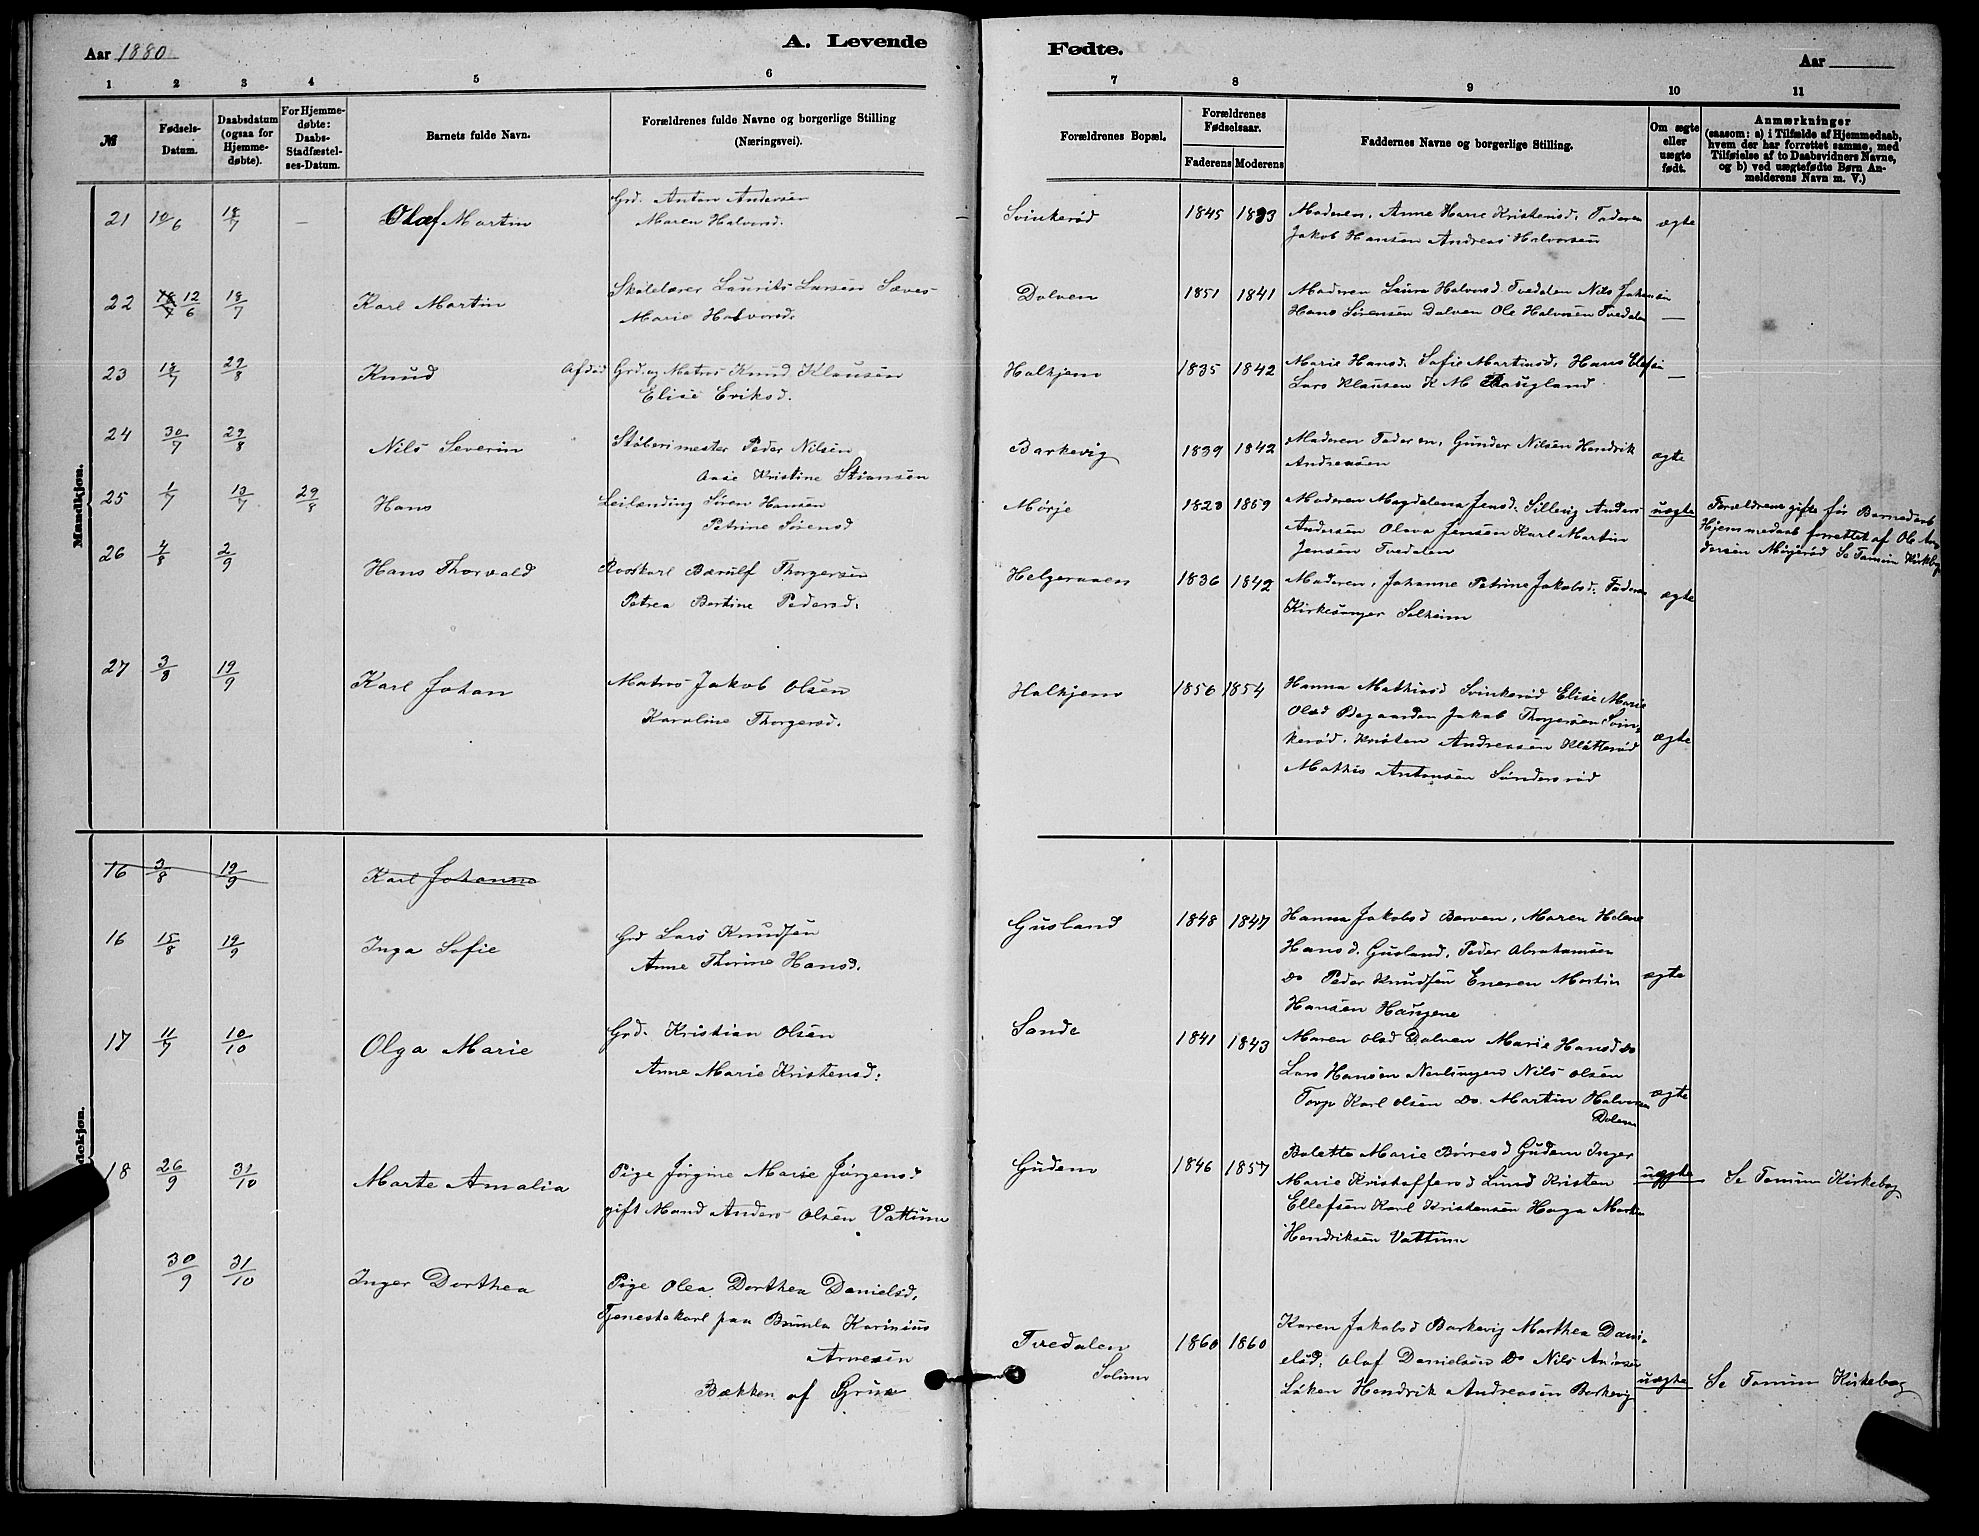 Aar 1880
A. Levende
Fødte.
Aar
1 2 3 4 5 6 7 8 9 10 11
№
Fødsels-Datum.
Daabsdatum (ogsaa for Hjemme-døbte).
For Hjemme-døbte: Daabs-Stadfæstel-ses-Datum.
Barnets fulde Navn.
Forældrenes fulde Navne og borgerlige Stilling
(Næringsvei).
Forældrenes Bopæl.
Forældrenes Fødselsaar.
Faderens Moderens
Faddernes Navne og borgerlige Stilling.
Om ægte eller uægte født.
Anmærkninger
(saasom: a) i Tilfælde af Hjemmedaab,
hvem der har forrettet samme, med
Tilføielse af to Daabsvidners Navne,
og b) ved uægtefødte Børn An-
melderens Navn m. V.)
Mandkjøn.
21 10/6 18/7 — Olaf Martin
Grd. Anton Andersen
Maren Halvorsd.
Svinkerød 1845 1833
Moderen, Anne Marie Kristensd. Faderen
Jakob Hansen Andreas Halvorsen
ægte
22 18/7 12/6 18/7 Karl Martin
Skolelærer Laurits Larsen Sæves
Marie Halvorsd.
Dolven 1851 1841
Moderen Laura Halvorsd Tvedalen Nils Johansen
Hans Sørensen Dolven Ole Halvorsen Tvedalen
—
23 18/7 29/8 Knud
Afdød Grd. og Matros Knud Klausen
Elise Eriksd.
Halkjem 1835 1842
Marie Hansd. Sofie Martinsd, Hans Olefsen
Lars Klausen K M Haugland
—
24 30/7 29/8 Nils Severin
Støberimester Peder Nilsen
Aase Kristine Stiansen
Barkevig 1839 1842
Moderen Faderen, Gunder Nilsen Hendrik
Andreasen
ægte
25 1/7 13/7 29/8 Hans
Leilænding Søren Hansen
Petrine Sørensd
Mørje 1823 1859
Moderen Magdalena Jensd. Sillevig Anders
Andersen Olava Jensen Karl Martin
Jensen Tvedalen
uægte
Forældrene gifte før Barnedaab
Hjemmedaab forrettet af Ole An-
dersen Mørjerød Se Tanum Kirkebog
26 4/8 2/9 Hans Thorvald
Roerskarl Børulf Thorgersen
Petrea Bertine Pedersd.
Helgeraaen 1836 1842
Moderen, Johanne Petrine Jakobsd. Faderen
Kirkesanger Solheim
ægte
27 3/8 19/9 Karl Johan
Matros Jakob Olsen
Karoline Thorgersd.
Halkjem 1856 1854
Hanna Mathiasd Svinkerød Elise Marie
Olsd Ødegaarden Jakob Thorgersen Svin-
kerød. Kristen Andreasen Klåtterød
Mathis Antonsen Søndersrød
ægte
16 3/8 19/9 Karl Johanne
16 15/8 19/9 Inga Sofie
Grd Lars Knudsen
Anne Thorine Hansd.
Gusland 1848 1847
Hanna Jakobsd Berven, Maren Helene
Hansd. Gusland, Peder Abrahamsen
Do Peder Knudsen Eneren Martin
Hansen Haugene
ægte
17 11/7 10/10 Olga Marie
Grd. Kristian Olsen
Anne Marie Kristensd.
Sande 1841 1843
Maren Olsd Dolven Marie Hansd Do
Lars Hansen Nevlungen Nils Olsen
Torp Karl Olsen Do. Martin Halvorsen
Dolven
ægte
dekjøn.
18 26/9 31/10 Marte Amalia
Pige Jørgine Marie Jørgensd
gift Mand Anders Olsen Vattum
Gudem 1846 1857
Bolette Marie Børresd Gudem Inger
Marie Kristoffersd Lund Kristen
Ellefsen Karl Kristensen Haga Martin
Hendriksen Vattum
uægte
Se Tanum Kirkebog
30/9 31/10 Inger Dorthea
Pige Olea Dorthea Danielsd,
Tjenestekarl paa Brunla Karinius
Arnesen
Bækken af Grua
Tvedalen 1860 1860
Solum
Karen Jakobsd Barkevig Marthea Dani-
elsd. Olaf Danielsen Do Nils Andersen
Løken Hendrik Andreasen Barkevig
uægte
Se Tanum Kirkebog